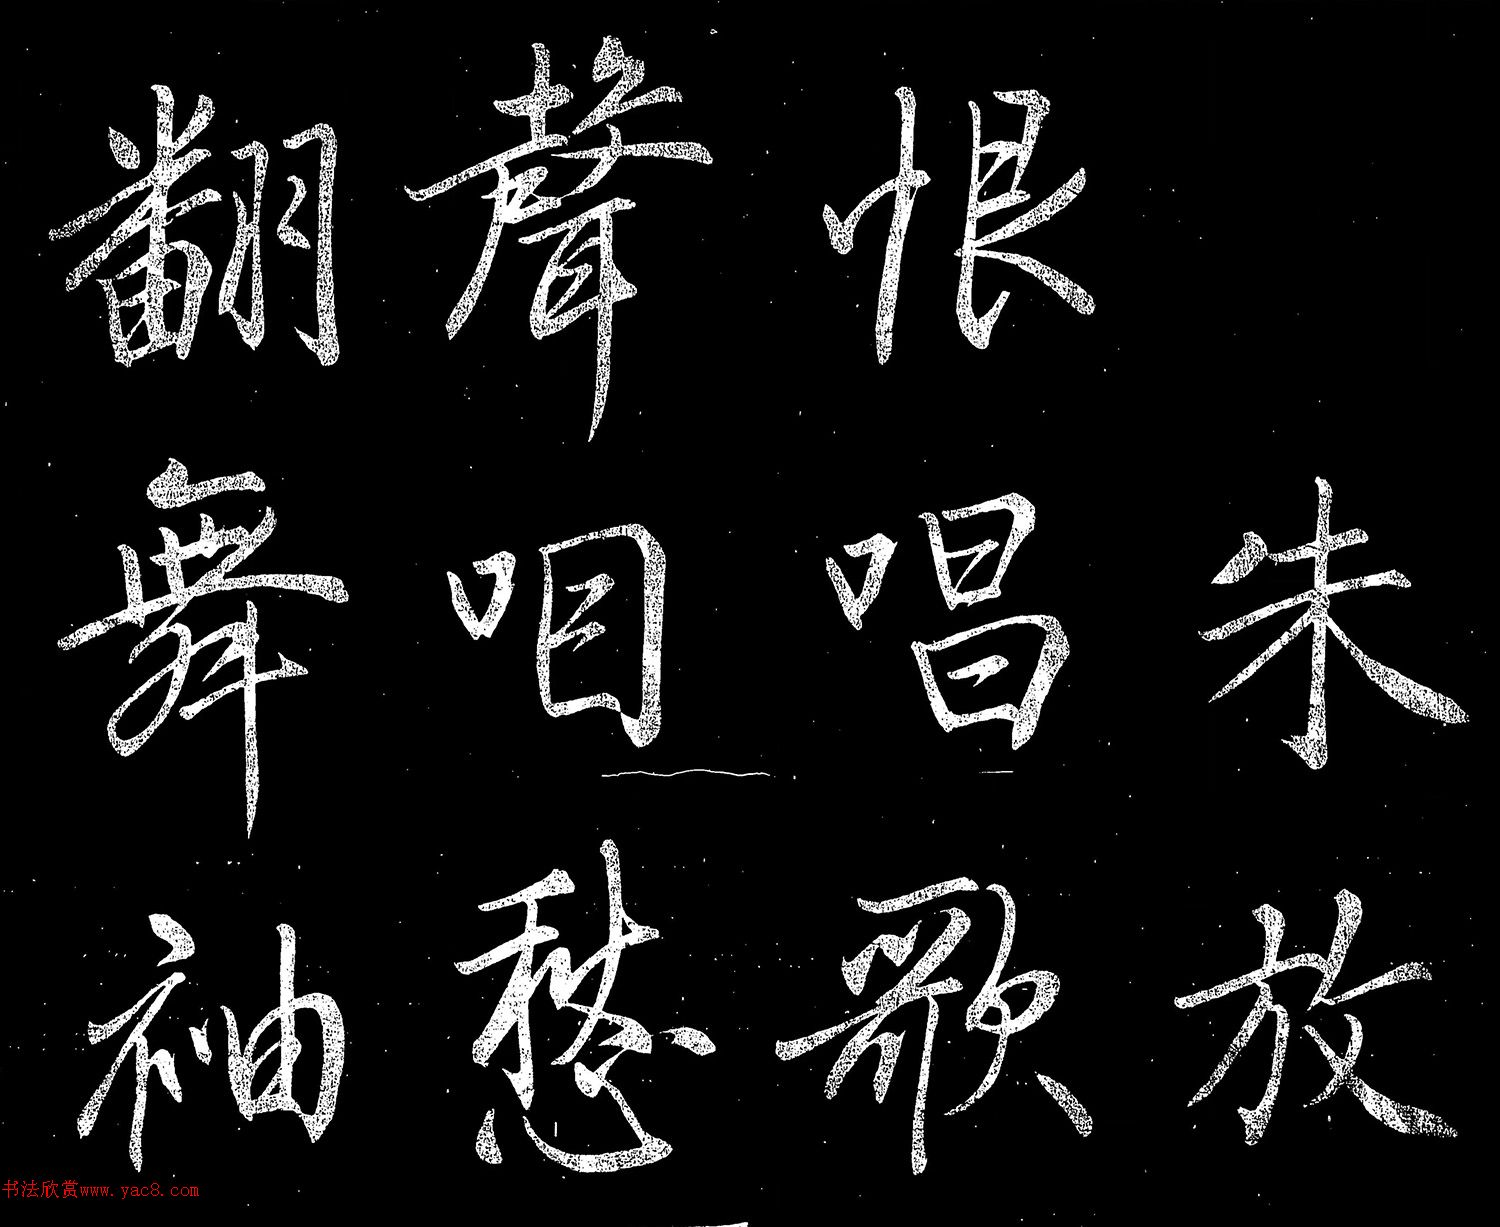 朱放
恨唱歌
聲咱愁
翻舞袖
书法欣赏www.yac8.com